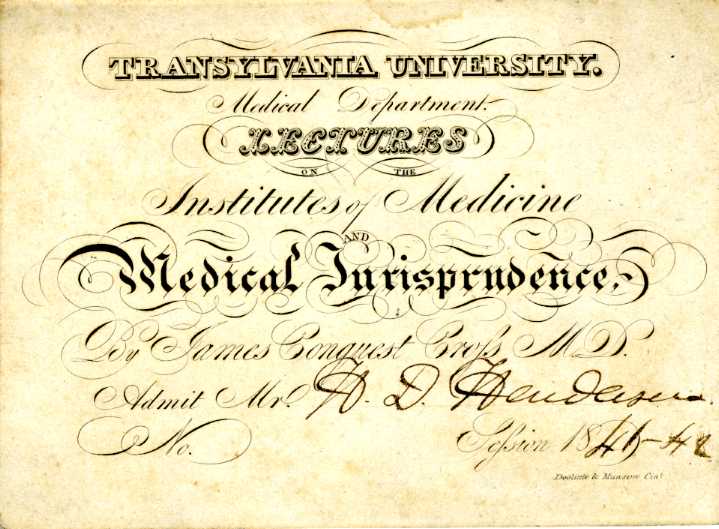 TRANSYLVANIA UNIVERSITY.
Medical Department.
LECTURES
ON THE
Institutes of Medicine
AND
Medical Jurisprudence.
By James Conquest Croſs M.D.
Admit Mr. H. D. Henderson
No. Seſsion 1841-42
Doolittle & Munson Cinṭ